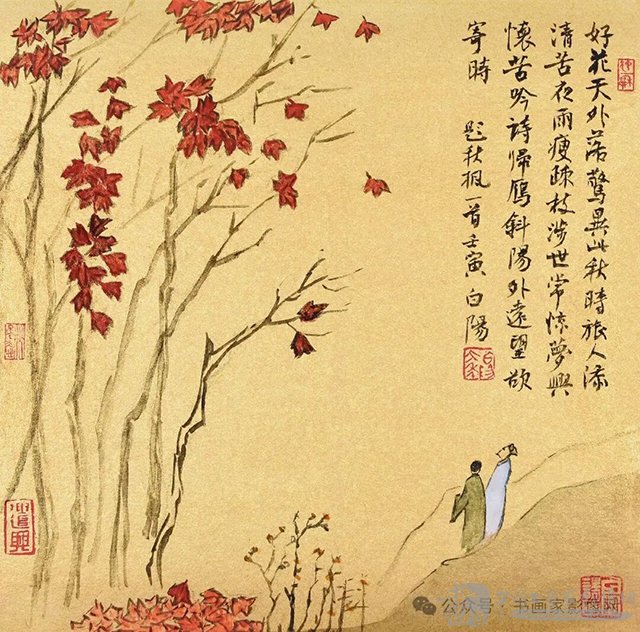 好花天外落驚異此秋時旅人添
清苦夜雨瘦疎枝涉世常惊夢興
懷苦吟詩歸鴈斜陽外遠望欲
寄時 題秋楓一首壬寅 白陽
公众号 · 书画家影像网